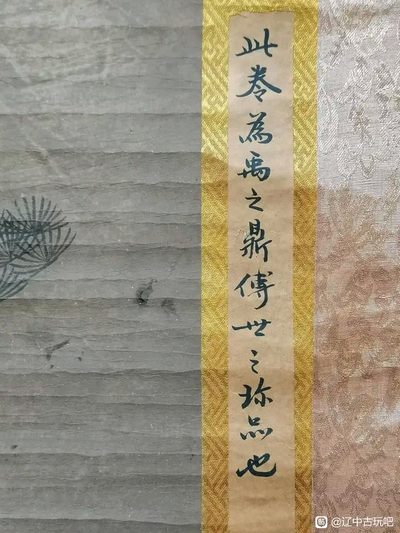 此卷為禹之鼎傳世之珎品也
@辽中古玩吧